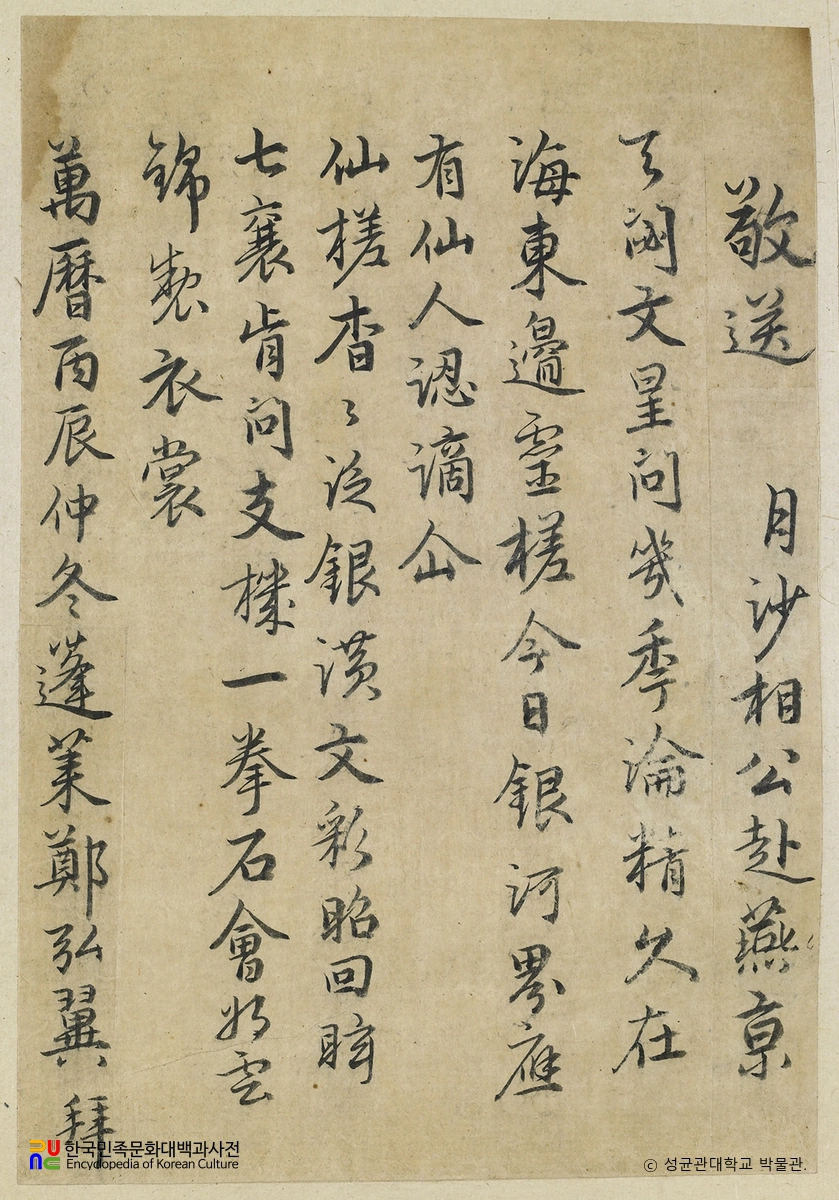 敬送 月沙相公赴燕京
天文星問幾季淪精久在
海東邊靈槎今日銀河界應
有仙人認謫仚
仙槎杳々泛銀潢文彩昭回眩
七襄肯問支機一拳石會將雲
錦製衣裳
萬曆丙辰仲冬蓬萊鄭弘翼拜
한국민족문화대백과사전
Encyclopedia of Korean Culture
ⓒ 성균관대학교 박물관.